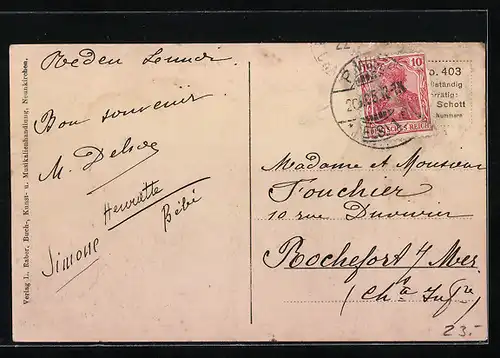 Reden Lundi
Bon souvenir
M. Delsoe
Henriette
Bébé
Simone
Verlag L. Rabor, Buch-, Kunst- u. Musikalienhandlung, Neunkirchen.
10
DEUTSCHES REICH
o. 403
llständig
rrätig:
Schott
Nummern
Madame et Monsieur
Fouchier
10 rue
Rochefort s/ Mer
(Ch.te Infre)
23.-